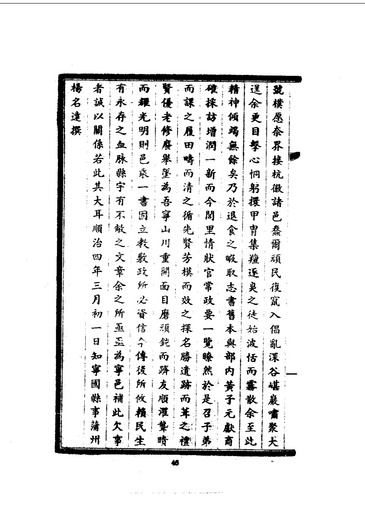 號樸愿泰界接杭徽諸邑蠢爾頑民復竄入倡亂深谷嵁巖嘯聚大
逞余更目擊心恫躬擐甲冑集羅逐㚖之徒始波恬而霧散余至此
精神傾竭無餘矣乃於退食之暇取志書舊本與部內黃子元獻商
確採訪增潤一新而今閭里情狀官常政要一覽瞭然於是召子弟
而課之履田疇而清之循先賢芳模而效之探名勝遺跡而葺之禮
賢優老修廢舉墜為吾寧山川重開面目磨頑鈍而躋友順濯聾晴
而耀光明則邑乘一書固立教敷政所必資信今傳後所攸賴民生
有永存之血脉縣宇有不敝之文章余之所亟亟為寧邑補此欠事
者誠以關係若此其大耳順治四年三月初一日知寧國縣事蒲州
楊名遠撰
46